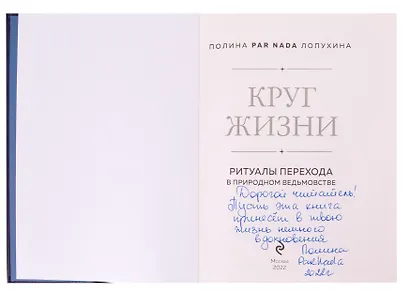 ПОЛИНА PAR NADA ЛОПУХИНА
КРУГ
ЖИЗНИ
РИТУАЛЫ ПЕРЕХОДА
В ПРИРОДНОМ ВЕДЬМОВСТВЕ
Дорогой читатель!
Пусть эта книга
принесёт в твою
жизнь немного
вдохновения
Полина
ParNada
2022г
Москва
2022